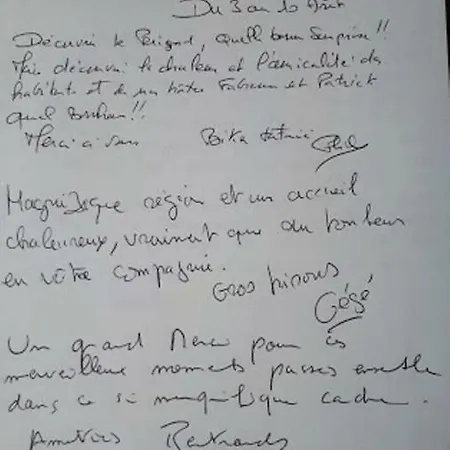 Du 3 au 10 Août
Découvrir le Périgord, quelle bonne surprise !!
Mais découvrir la chaleur et l'amicalité des
habitants et de nos hôtes Fabienne et Patrick
quel bonheur !!
Merci à vous
Magnifique région et un accueil
chaleureux, vraiment que du bonheur
en votre compagnie.
Gros bisous
Gégé
Un grand Merci pour ces
merveilleux moments passés ensemble
dans ce si magnifique cadre.
Amitiés